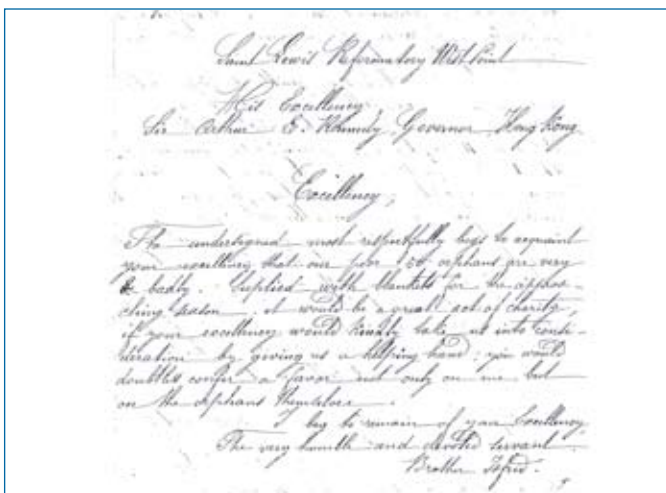 Saint Lewis Reformatory West Point
His Excellency,
Sir Arthur E. Kennedy, Governor Hong Kong
Excellency,
The undersigned most respectfully begs to acquaint
your excellency that our poor 50 orphans are very
badly. Supplied with blankets for the approa-
ching season. it would be a real act of charity,
if your excellency would kindly take us into consi-
deration by giving us a helping hand; you would
doubtless confer a favor not only on me but
on the orphans themselves.
I beg to remain of your Excellency
The very humble and devoted servant.
Brother